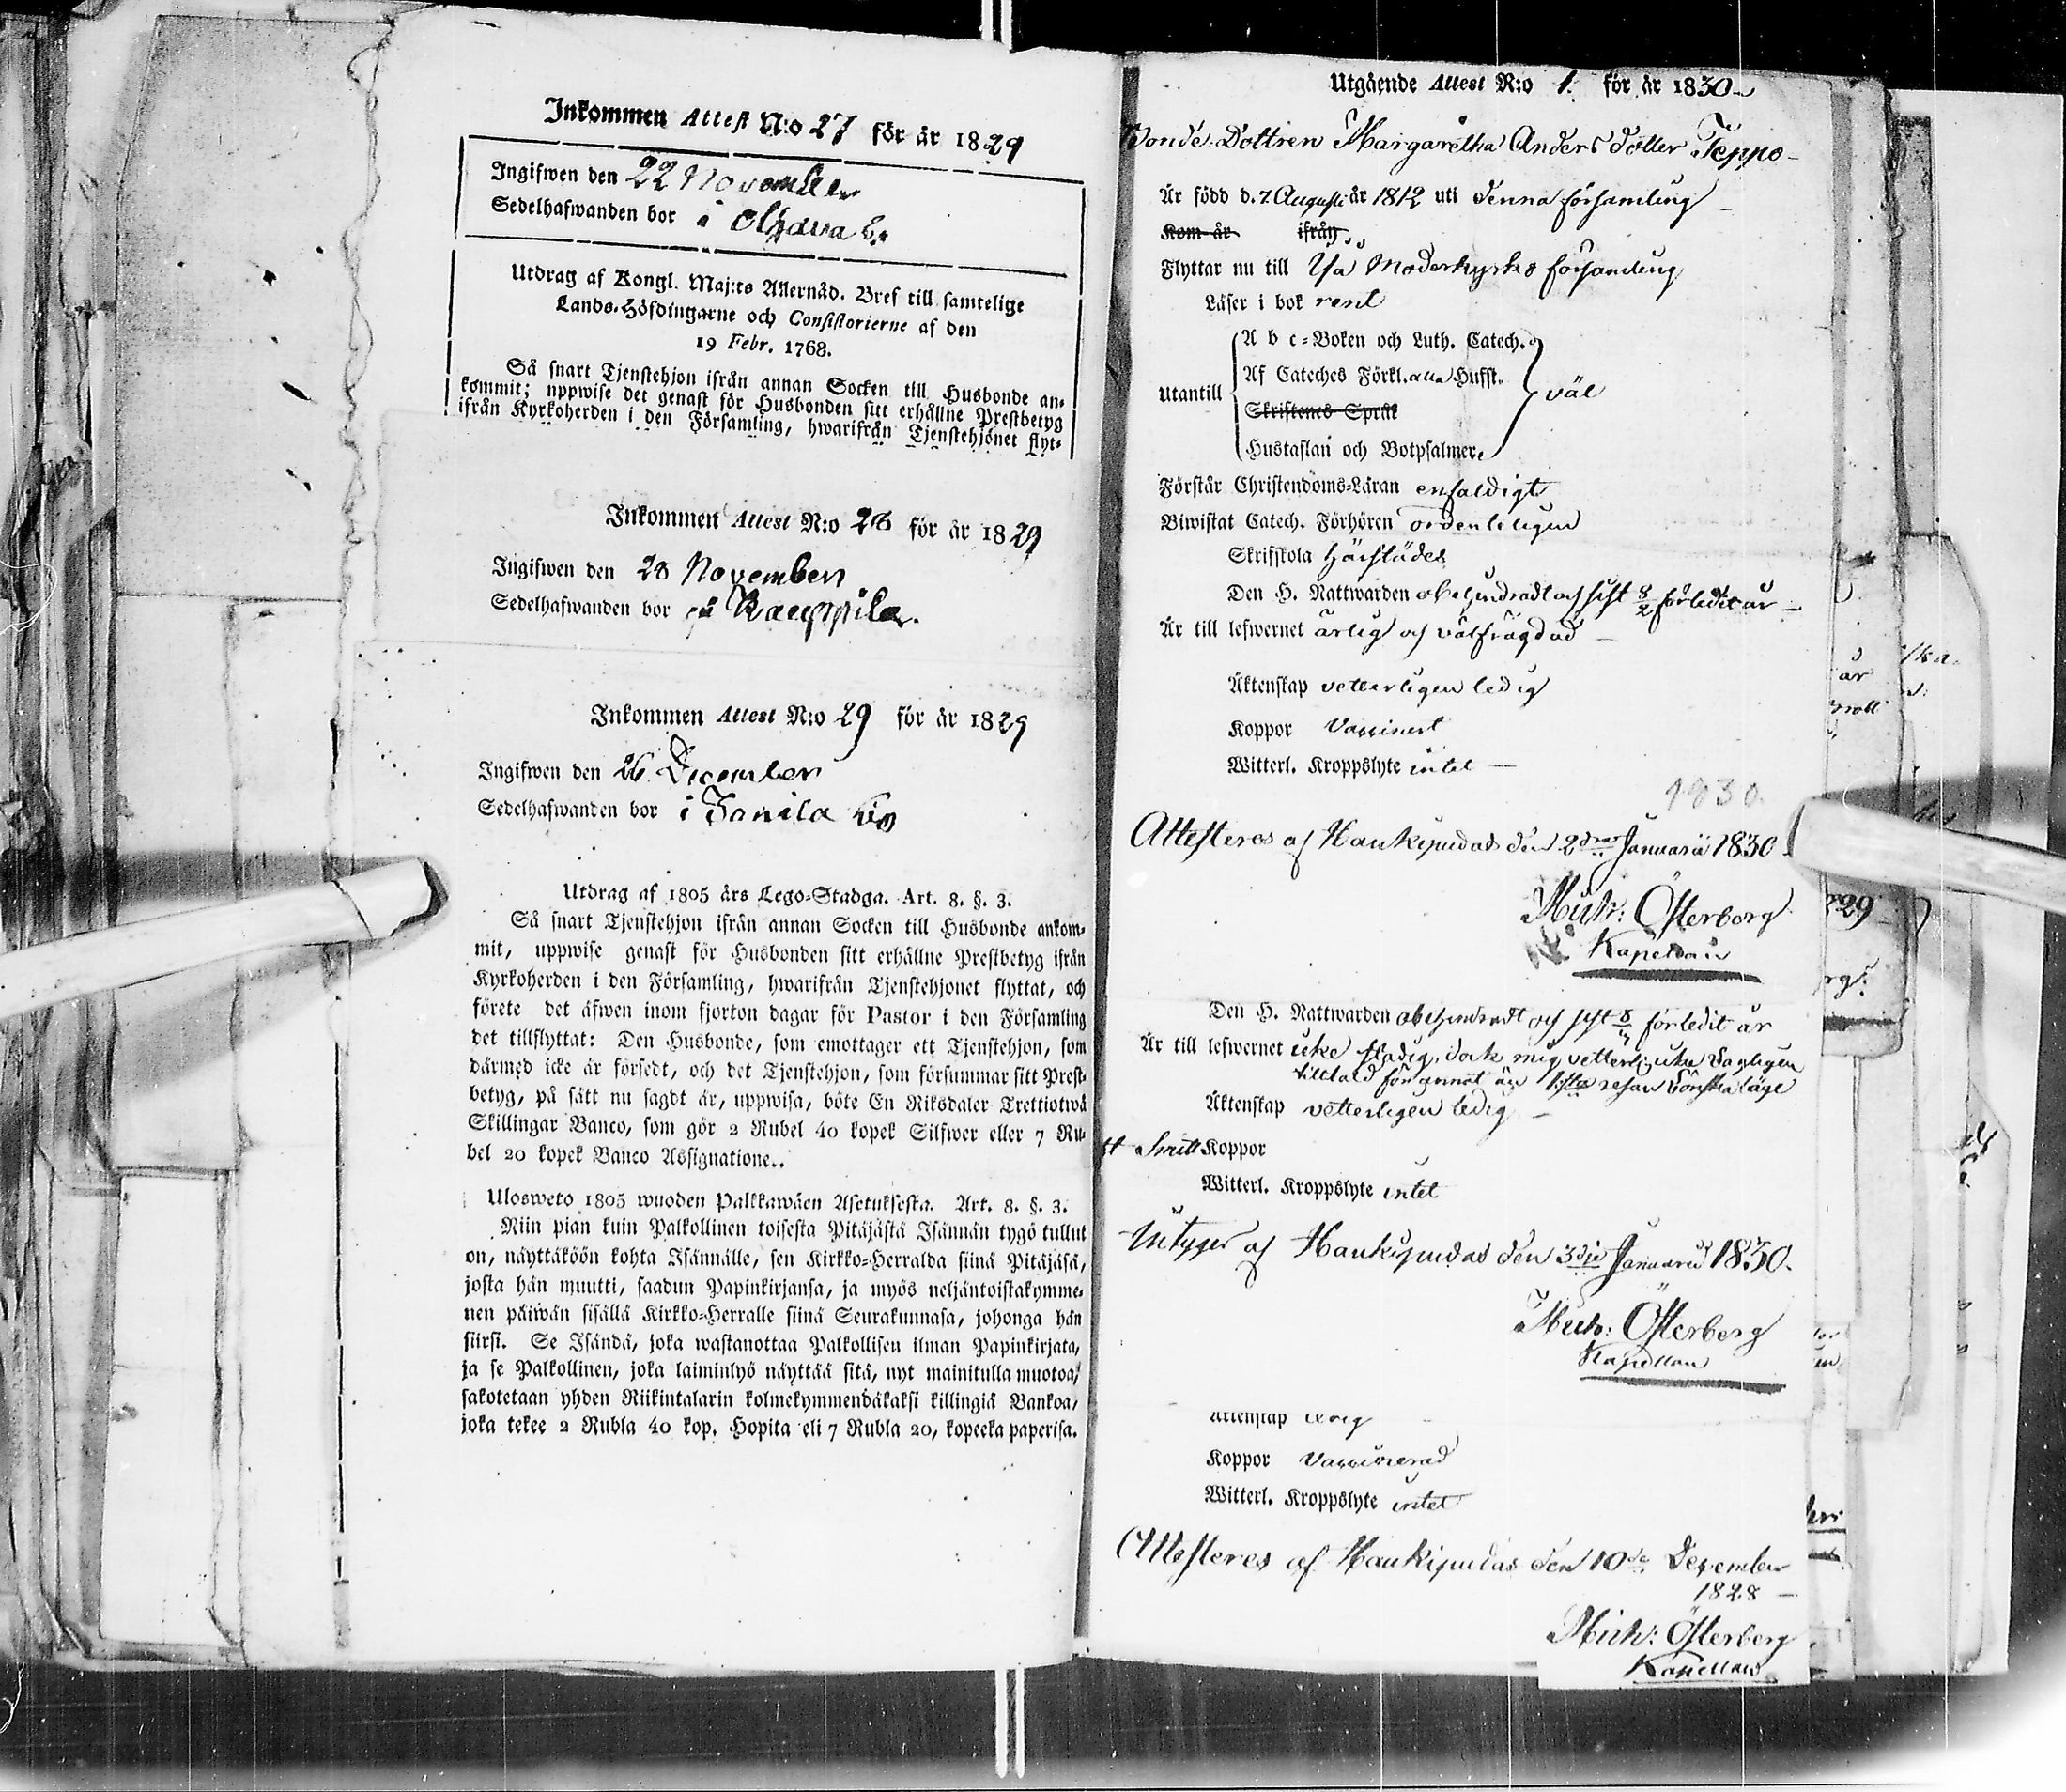 Inkommen Attest N:o 27 för år 1829
Ingifwen den 22 November
Sedelhafwanden bor i Olhava by
Utdrag af Kongl. Maj:ts Allernåd. Bref till samtelige
Lands-Höfdingarne och Consistorierne af den
19 Febr. 1768.
Så snart Tjenstehjon ifrån annan Socken till Husbonde an-
kommit; uppwise det genast för Husbonden sitt erhållne Prestbetyg
ifrån Kyrkoherden i den Församling, hwarifrån Tjenstehjonet flyt-
Inkommen Attest N:o 28 för år 1829
Ingifwen den 28 November
Sedelhafwanden bor på Kauppila.
Inkommen Attest N:o 29 för år 1829
Ingifwen den 26 December
Sedelhafwanden bor i Jonila by
Utdrag af 1805 års Lego-Stadga. Art. 8. §. 3.
Så snart Tjenstehjon ifrån annan Socken till Husbonde ankom-
mit, uppwise genast för Husbonden sitt erhållne Prestbetyg ifrån
Kyrkoherden i den Församling, hwarifrån Tjenstehjonet flyttat, och
förete det äfwen inom fjorton dagar för Pastor i den Församling
det tillflyttat: Den Husbonde, som emottager ett Tjenstehjon, som
därmed icke är försedt, och det Tjenstehjon, som försummar sitt Prest-
betyg, på sätt nu sagdt är, uppwisa, böte En Riksdaler Trettiotwå
Skillingar Banco, som gör 2 Rubel 40 kopek Silfwer eller 7 Ru-
bel 20 kopek Banco Assignatione..
Ulosweto 1805 wuoden Palkkawäen Asetuksesta. Art. 8. §. 3.
Niin pian kuin Palkollinen toisesta Pitäjästä Isännän tygö tullut
on, näyttäköön kohta Isännälle, sen Kirkko-Herralda siinä Pitäjäsä,
josta hän muutti, saadun Papinkirjansa, ja myös neljäntoistakymme-
nen päiwän sisällä Kirkko-Herralle siinä Seurakunnasa, johonga hän
siirsi. Se Isändä, joka wastanottaa Palkollisen ilman Papinkirjata,
ja se Palkollinen, joka laiminlyö näyttää sitä, nyt mainitulla muotoa,
sakotetaan yhden Riikintalarin kolmekymmendäkaksi killingiä Bankoa,
joka tekee 2 Rubla 40 kop. Hopita eli 7 Rubla 20, kopeeka paperisa.
Utgående Attest N:o 1. för år 1830
Bonde Dottren Margaretha Anders dotter Jeppo
Är född d. 7. Augusti år 1812 uti denna församling
Kom år ifrån
Flyttar nu till Ijå Moderkyrko församling
Läser i bok rent
Utantill
A b c-Boken och Luth. Catech.
Af Cateches Förkl. alla Hufst.
Skriftenes Språk
Hustaflan och Botpsalmer.
väl
Förstår Christendoms-Läran enfaldigt
Biwistat Catech. Förhören ordenteligen
Skrifskola härstädes
Den H. Nattwarden obehindradt och sist 8/2 förledit år
Är till lefwernet ärlig och välfrägdad
Äktenskap vetterligen ledig
Koppor Vaccinert
Witterl. Kroppslyte intet
1830.
Attesteras af Haukipudas den 2dra Januarii 1830.
Mich: Österberg
Kapellan
Den H. Nattwarden obehindradt och sist förledit år
Är till lefwernet icke stadig, dock mig vetterl: icke
tilltald för annat än 1sta resan lönska läge
Äktenskap vetterligen ledig
Koppor
Witterl. Kroppslyte intet
Intygar af Haukipudas den 3dje Januarii 1830.
Mich: Österberg
Kapellan
Äktenskap ledig
Koppor Vaccinerad
Witterl. Kroppslyte intet
Attesteras af Haukipudas den 10de December
1828
Mich: Österberg
Kapellan